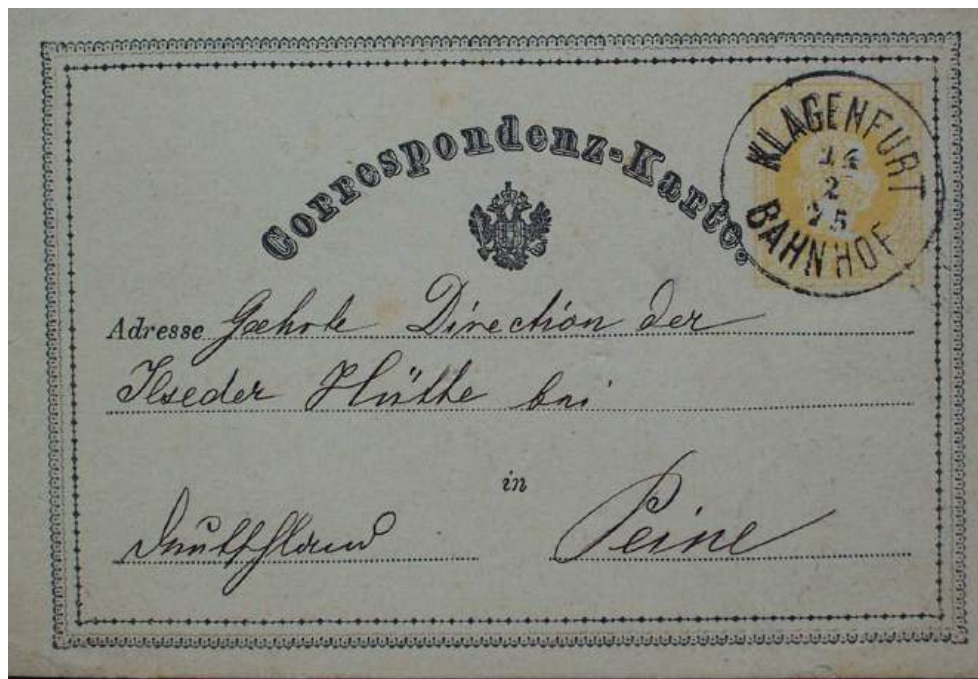 Correspondenz-Karte.
KLAGENFURT
2
75
BAHNHOF
Adresse Geehrte Direction der
Ilseder Hütte bei
in
Deutschland Peine